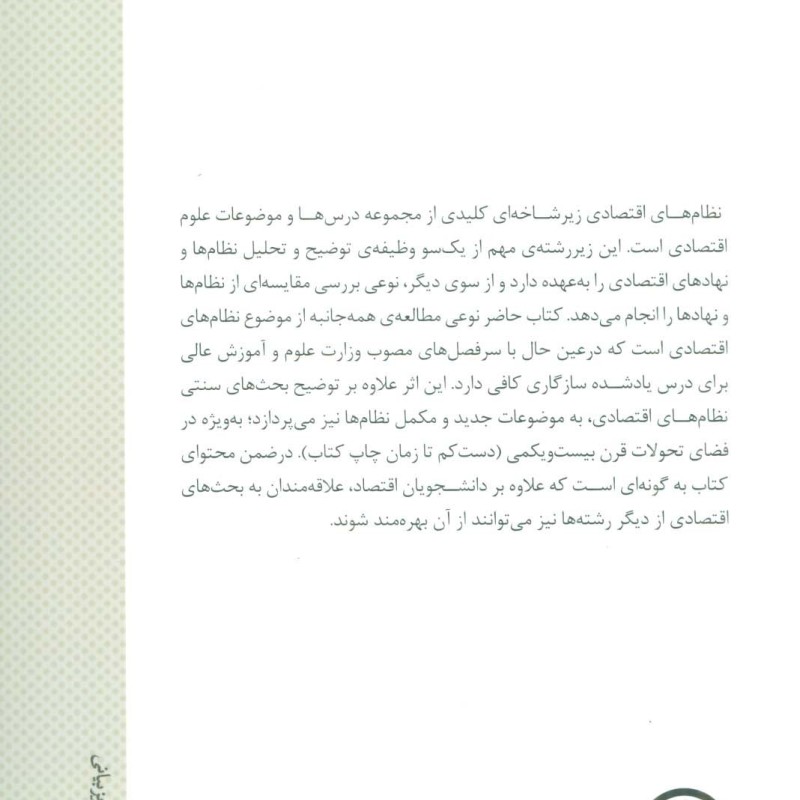 نظام‌های اقتصادی زیرشاخه‌ای کلیدی از مجموعه درس‌ها و موضوعات علوم
اقتصادی است. این زیررشته‌ی مهم از یک‌سو وظیفه‌ی توضیح و تحلیل نظام‌ها و
نهادهای اقتصادی را به‌عهده دارد و از سوی دیگر، نوعی بررسی مقایسه‌ای از نظام‌ها
و نهادها را انجام می‌دهد. کتاب حاضر نوعی مطالعه‌ی همه‌جانبه از موضوع نظام‌های
اقتصادی است که درعین حال با سرفصل‌های مصوب وزارت علوم و آموزش عالی
برای درس یادشده سازگاری کافی دارد. این اثر علاوه بر توضیح بحث‌های سنتی
نظام‌های اقتصادی، به موضوعات جدید و مکمل نظام‌ها نیز می‌پردازد؛ به‌ویژه در
فضای تحولات قرن بیست‌ویکمی (دست‌کم تا زمان چاپ کتاب). درضمن محتوای
کتاب به گونه‌ای است که علاوه بر دانشجویان اقتصاد، علاقه‌مندان به بحث‌های
اقتصادی از دیگر رشته‌ها نیز می‌توانند از آن بهره‌مند شوند.